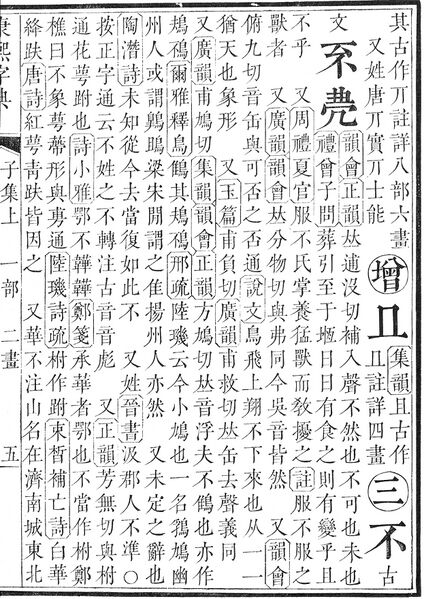 其古作丌註詳八部六畫
又姓唐丌實丌士能
增 𠀇 集韻且古作
𠀇註詳四畫
三 不 古
文
韻會正韻𠀤逋沒切補入聲不然也不可也未也
禮曾子問葬引至于堩日有食之則有變乎且
不乎 又周禮夏官服不氏掌養猛獸而敎擾之註服不服之
獸者 又廣韻韻會𠀤分物切與弗同今吳音皆然 又韻會
俯九切音缶與可否之否通說文鳥飛上翔不下來也从一一
猶天也象形 又玉篇甫負切廣韻甫救切𠀤缶去聲義同
又廣韻甫鳩切集韻韻會正韻方鳩切𠀤音浮夫不鵻也亦作
鳺鴀爾雅釋鳥鵻其鳺鴀邢疏陸璣云今小鳩也一名鵓鳩幽
州人或謂鷱鶝梁宋閒謂之隹揚州人亦然 又未定之辭也
陶潛詩未知從今去當復如此不 又姓晉書汲郡人不準○
按正字通云不姓之不轉注古音音彪 又正韻芳無切與柎
通花萼跗也詩小雅鄂不韡韡鄭箋承華者鄂也不當作柎鄭
樵曰不象萼蔕形與旉通陸璣詩疏柎作跗束皙補亡詩白華
絳趺唐詩紅萼靑趺皆因之 又華不注山名在濟南城東北
康熙字典 子集上 一部 二畫 五